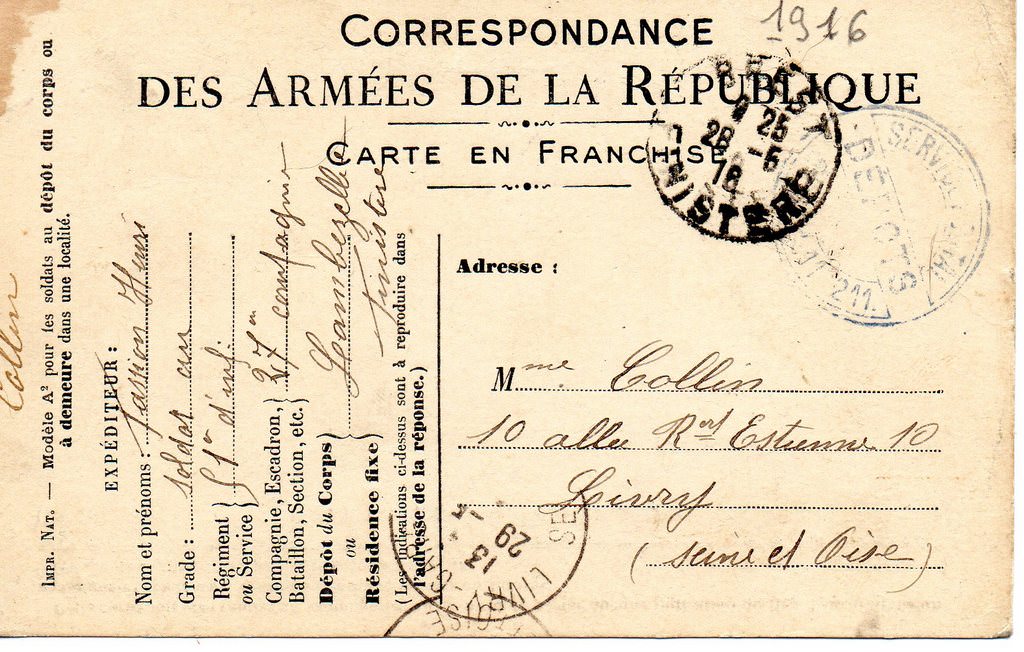 1916
CORRESPONDANCE
DES ARMÉES DE LA RÉPUBLIQUE
CARTE EN FRANCHISE
BREST
25
28 -5
16
FINISTERE
DEPOTS
211
Adresse :
Mme. Collin
10 allée Rert Estienne 10
Livry
(Seine et Oise)
Collin
IMPR. NAT. — Modèle A² pour les soldats au dépôt du corps ou
à demeure dans une localité.
EXPÉDITEUR :
Nom et prénoms : Henri
Grade : soldat au
Régiment
ou Service } d'inf.
Compagnie, Escadron,
Bataillon, Section, etc. } 27e compagnie
Dépôt du Corps
ou
Résidence fixe } Lambezellec
Finistère
(Les indications ci-dessus sont à reproduire dans
l'adresse de la réponse.)
13
29 -5
LIVRY
SE